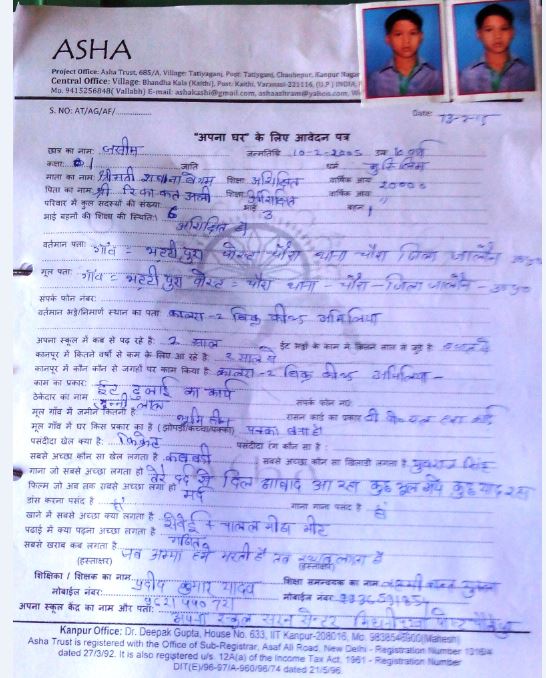 ASHA
Project Office: Asha Trust, 685/A, Village: Tatiyaganj, Post: Tatiyganj, Chaubepur, Kanpur Nagar
Central Office: Village: Bhandha Kala (Kaithi), Post: Kaithi, Varanasi-221116, (U.P.) INDIA,
Mo. 9415256848( Vallabh) E-mail: ashakashi@gmail.com, ashaashram@yahoo.com,
S. NO: AT/AG/AF/
Date:
"अपना घर" के लिए आवेदन पत्र
छात्र का नाम: जसीम जन्मतिथि 10-2-2005 उम्र 10 वर्ष
कक्षा: 1 जाति धर्म मुस्लिम
माता का नाम: श्रीमती शिक्षा अशिक्षित वार्षिक आय 20000
पिता का नाम: श्री अली शिक्षा अशिक्षित वार्षिक आय "
परिवार में कुल सदस्यों की संख्या: 6 भाई 3 बहन 1
भाई बहनों की शिक्षा की स्थिति:
अशिक्षित है।
वर्तमान पता: गाँव = भट्टी पुरा पोस्ट चौरा थाना चौरा जिला जालौन उ०प्र०
मूल पता: गाँव = भट्टी पुरा पोस्ट = चौरा थाना - चौरा - जिला जालौन - उ०प्र०
संपर्क फोन नंबर:
वर्तमान भठ्ठे/निर्माण स्थान का पता: कालरा-2 ब्रिक फील्ड
अपना स्कूल में कब से पढ़ रहे है: 2 साल ईट भठ्ठों के काम में कितने साल से जुड़े है:
कानपुर में कितने वर्षो से कम के लिए आ रहे है: 2 साल से
कानपुर में कौन कौन से जगहों पर काम किया है: कालरा-2 ब्रिक फील्ड
काम का प्रकार: ईंट ढुलाई का कार्य
ठेकेदार का नाम लाल संपर्क फोन नं०:
मूल गाँव में जमीन कितनी है: भूमि हीन राशन कार्ड का प्रकार
मूल गाँव में घर किस प्रकार का है (झोपड़ी/कच्चा/पक्का) पक्का बना है।
पसंदीदा खेल क्या है: क्रिकेट पसंदीदा रंग कौन सा है:
सबसे अच्छा कौन सा खेल लगता है: कबड्डी सबसे अच्छा कौन सा खिलाड़ी लगता है: युवराज सिंह
गाना जो सबसे अच्छा लगता हो तेरे दर्द से दिल आबाद आ रहा कुछ भूल गये कुछ याद रहा
फिल्म जो अब तक सबसे अच्छा लगा हो मर्द
डांस करना पसंद है: हाँ गाना गाना पसंद है: हाँ
खाने में सबसे अच्छा क्या लगता है: सेवई + चावल मीट
पढाई में क्या पढ़ना अच्छा लगता है: गणित
सबसे खराब कब लगता है: जब अम्मा हमें मारती है तब खराब लगता है
(हस्ताक्षर) (हस्ताक्षर)
शिक्षिका / शिक्षक का नाम: प्रदीप कुमार यादव शिक्षा समन्वयक का नाम: गुप्ता
मोबाईल नंबर: मोबाईल नंबर:
अपना स्कूल केंद्र का नाम और पता: अपना स्कूल सेन्टर
Kanpur Office: Dr. Deepak Gupta, House No. 633, IIT Kanpur-208016, Mo. 9838546900(Mahesh)
Asha Trust is registered with the Office of Sub-Registrar, Asaf Ali Road, New Delhi - Registration Number
dated 27/3/92. It is also registered u/s. 12A(a) of the Income Tax Act, 1961 - Registration Number
DIT(E)/96-97/A-960/96/74 dated 21/5/96.